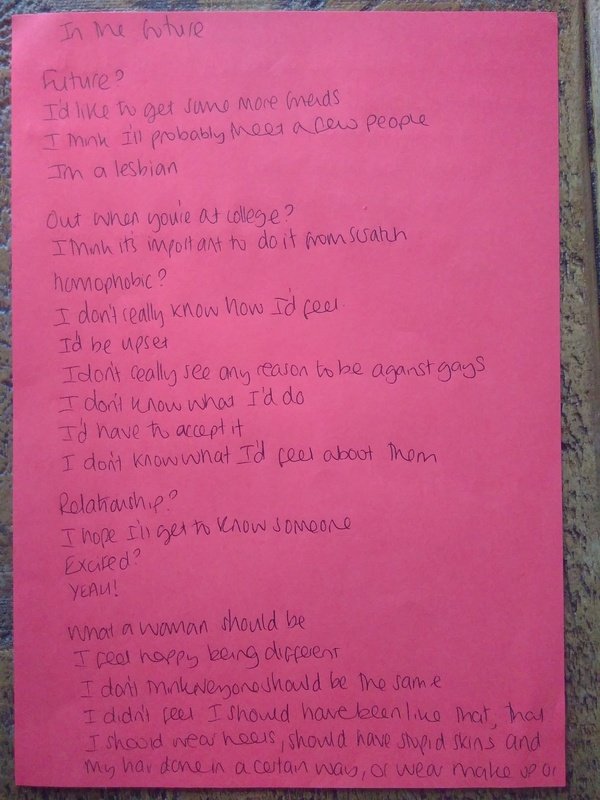 In the future
Future?
I'd like to get some more friends
I think I'll probably meet a few people
I'm a lesbian
Out when you're at college?
I think it's important to do it from scratch
homophobic?
I don't really know how I'd feel
I'd be upset
I don't really see any reason to be against gays
I don't know what I'd do
I'd have to accept it
I don't know what I'd feel about them
Relationship?
I hope I'll get to know someone
Excited?
YEAH!
What a woman should be
I feel happy being different
I don't think everyone should be the same
I didn't feel I should have been like that, that
I should wear heels, should have stupid skins and
my hair done in a certain way, or wear make up or